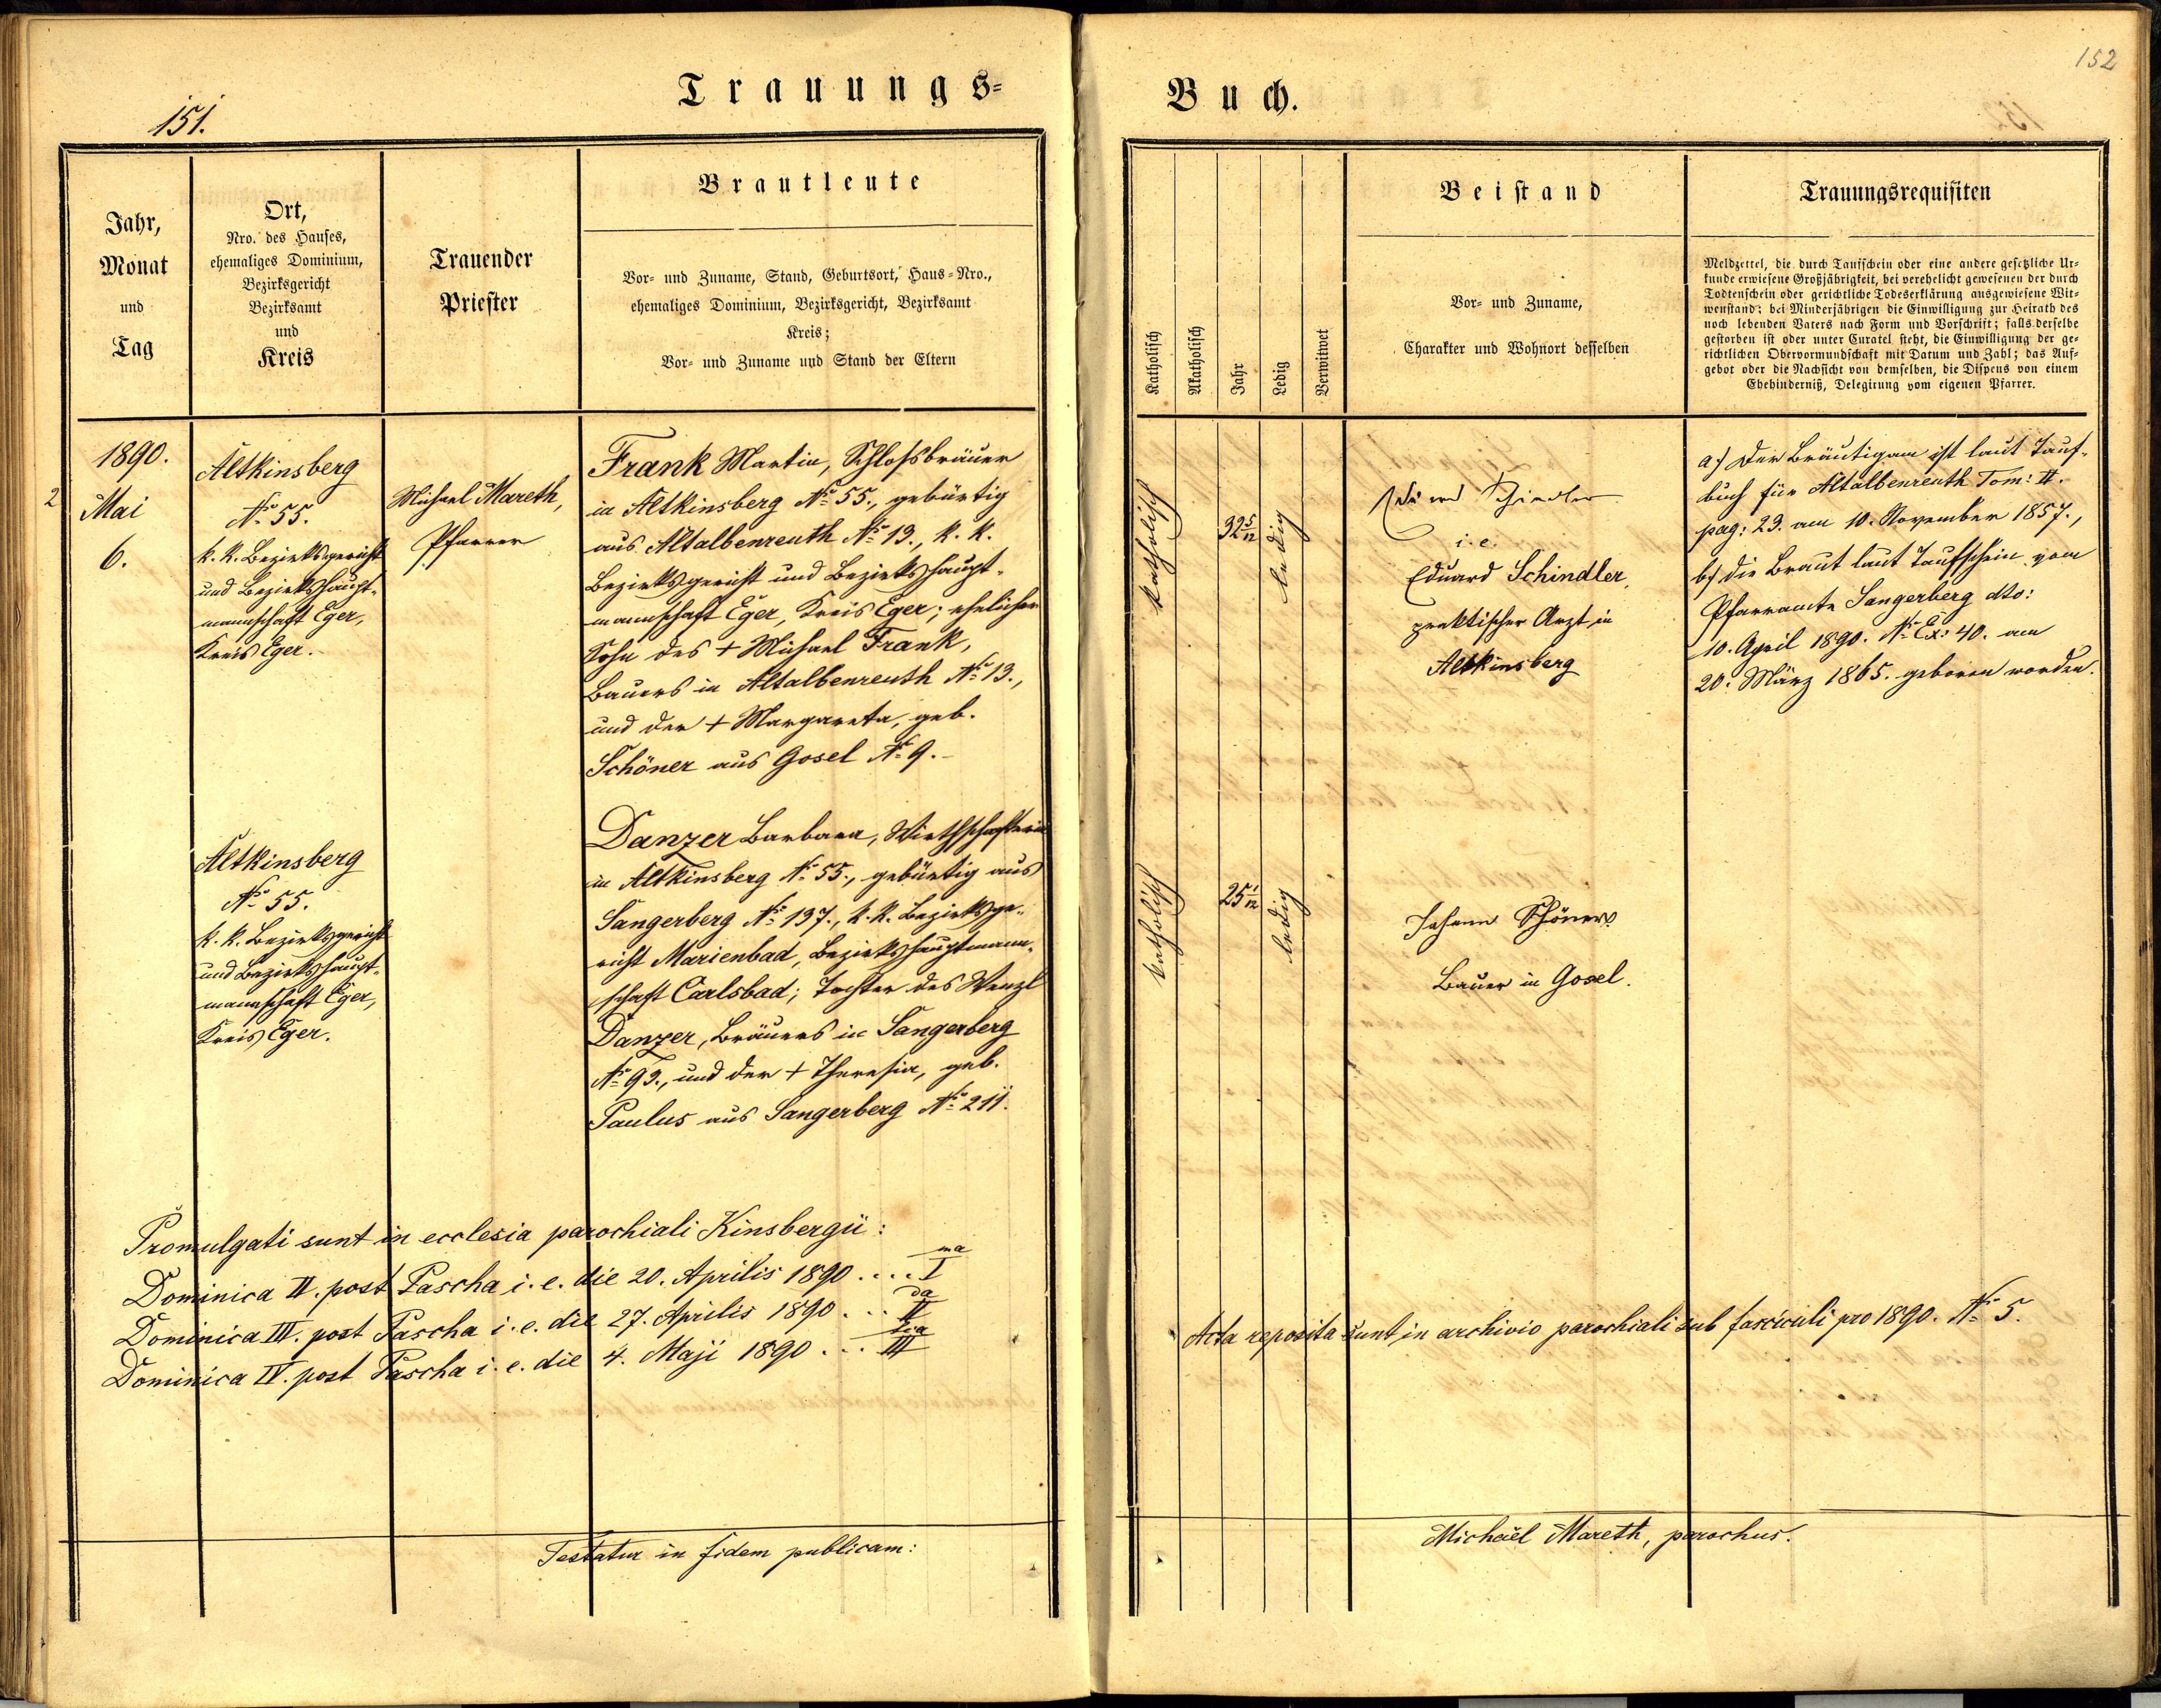 151.
152
Trauungs-
Buch.
Jahr,
Monat
und
Tag
Ort,
Nro. des Hauses,
ehemaliges Dominium,
Bezirksgericht
Bezirksamt
und
Kreis
Trauender
Priester
Brautleute
Vor- und Zuname, Stand, Geburtsort, Haus-Nro.,
ehemaliges Dominium, Bezirksgericht, Bezirksamt
Kreis;
Vor- und Zuname und Stand der Eltern
Katholisch
Akatholisch
Jahr
Ledig
Verwitwet
Beistand
Vor- und Zuname,
Charakter und Wohnort desselben
Trauungsrequisiten
Meldzettel, die durch Taufschein oder eine andere gesetzliche Ur-
kunde erwiesene Großjährigkeit, bei verehelicht gewesenen der durch
Todtenschein oder gerichtliche Todeserklärung ausgewiesene Wit-
wenstand; bei Minderjährigen die Einwilligung zur Heirath des
noch lebenden Vaters nach Form und Vorschrift; falls derselbe
gestorben ist oder unter Curatel steht, die Einwilligung der ge-
richtlichen Obervormundschaft mit Datum und Zahl; das Auf-
gebot oder die Nachsicht von demselben, die Dispens von einem
Ehehinderniß, Delegirung vom eigenen Pfarrer.
1890.
2 Mai
6.
Altkinsberg
No 55.
k. k. Bezirksgericht
und Bezirkshaupt-
mannschaft Eger,
Kreis Eger.
Michael Mareth,
Pfarrer
Frank Martin, Schloßbräuer
in Altkinsberg No 55., gebürtig
aus Altalbenreuth No 13., k. k.
Bezirksgericht und Bezirkshaupt-
mannschaft Eger, Kreis Eger; ehelicher
Sohn des + Michael Frank,
Bauers in Altalbenreuth No 13.,
und der + Margareta, geb.
Schöner aus Gosel No 9.
katholisch
32 5/12
ledig
Schindler
i. e.
Eduard Schindler,
praktischer Arzt in
Altkinsberg
a.) Der Bräutigam ist laut Tauf-
buch für Altalbenreuth Tom: II.
pag: 23. am 10. November 1857.,
b.) die Braut laut Taufschein vom
Pfarramte Sangerberg dto:
10. April 1890. No Ex: 40. am
20. März 1865. geboren worden.
Altkinsberg
No 55.
k. k. Bezirksgericht
und Bezirkshaupt-
mannschaft Eger,
Kreis Eger.
Danzer Barbara, Wirthschafterin
in Altkinsberg No 55., gebürtig aus
Sangerberg No 197., k. k. Bezirksge-
richt Marienbad, Bezirkshauptmann-
schaft Carlsbad; Tochter des Wenzl
Danzer, Bräuers in Sangerberg
No 93., und der + Theresia, geb.
Paulus aus Sangerberg No 211.
katholisch
25 1/12
ledig
Johann Schöner
Bauer in Gosel.
Promulgati sunt in ecclesia parochiali Kinsbergii:
Dominica II. post Pascha i. e. die 20. Aprilis 1890 .... I ma
Dominica III. post Pascha i. e. die 27. Aprilis 1890 ... II da
Dominica IV. post Pascha i. e. die 4. Maji 1890 ... III tia
Acta reposita sunt in archivio parochiali sub fasciculi pro 1890. No 5.
Testatur in fidem publicam:
Michaël Mareth, parochus.